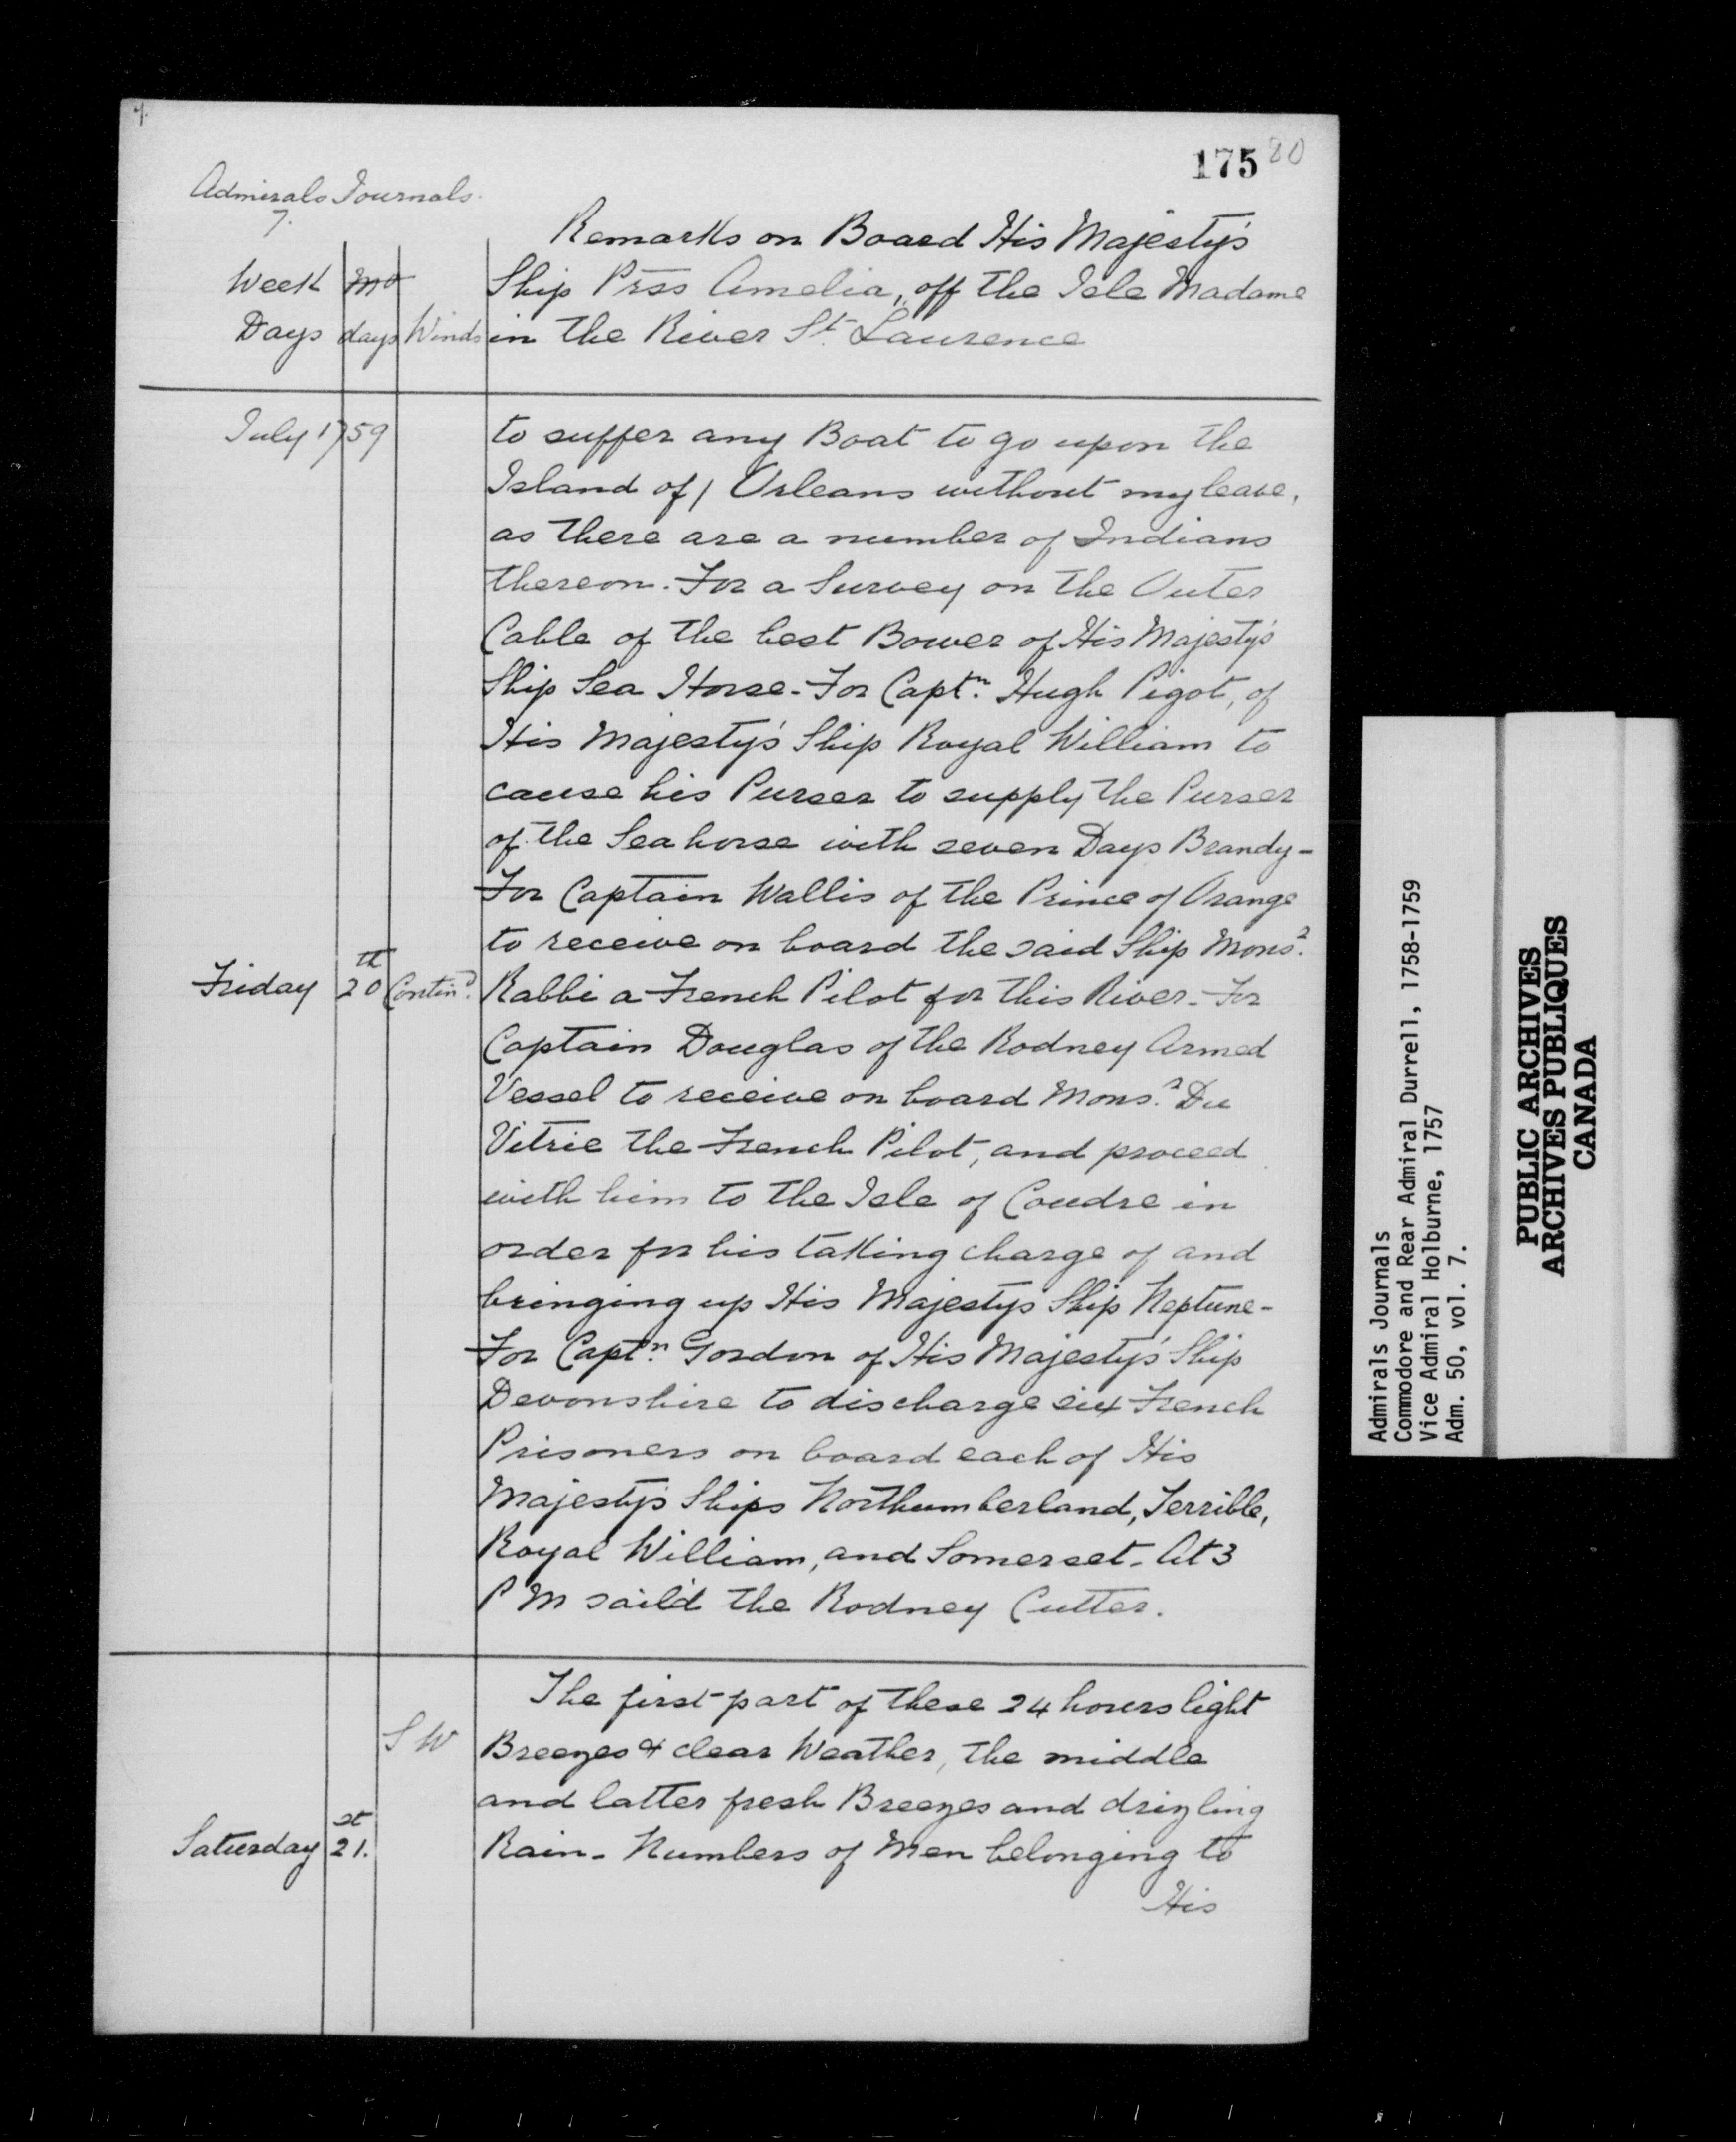 7.
175 80
Admirals Journals.
7.
Remarks on Board His Majesty's
Week Mo Ship Prss Amelia, off the Isle Madame
Days days Winds in the River St. Laurence
July 1759 to suffer any Boat to go upon the
Island of Orleans without my leave,
as there are a number of Indians
thereon. For a Survey on the Outer
Cable of the best Bower of His Majesty's
Ship Sea Horse - For Captn. Hugh Pigot, of
His Majesty's Ship Royal William to
cause his Purser to supply the Purser
of the Seahorse with seven Days Brandy -
For Captain Wallis of the Prince of Orange
to receive on board the said Ship Monsr.
Friday 20th Contind. Rabbi a French Pilot for this River - For
Captain Douglas of the Rodney Armed
Vessel to receive on board Monsr. Du
Vitrie the French Pilot, and proceed
with him to the Isle of Coudre in
order for his taking charge of and
bringing up His Majestys Ship Neptune -
For Captn. Gordon of His Majesty's Ship
Devonshire to discharge six French
Prisoners on board each of His
Majesty's Ships Northumberland, Terrible,
Royal William, and Somerset - At 3
P M sail'd the Rodney Cutter.
The first part of these 24 hours light
S W Breezes & clear Weather, the middle
and latter fresh Breezes and drizling
Saturday 21st. Rain - Numbers of Men belonging to
His
Admirals Journals
Commodore and Rear Admiral Durrell, 1758-1759
Vice Admiral Holburne, 1757
Adm. 50, vol. 7.
PUBLIC ARCHIVES
ARCHIVES PUBLIQUES
CANADA